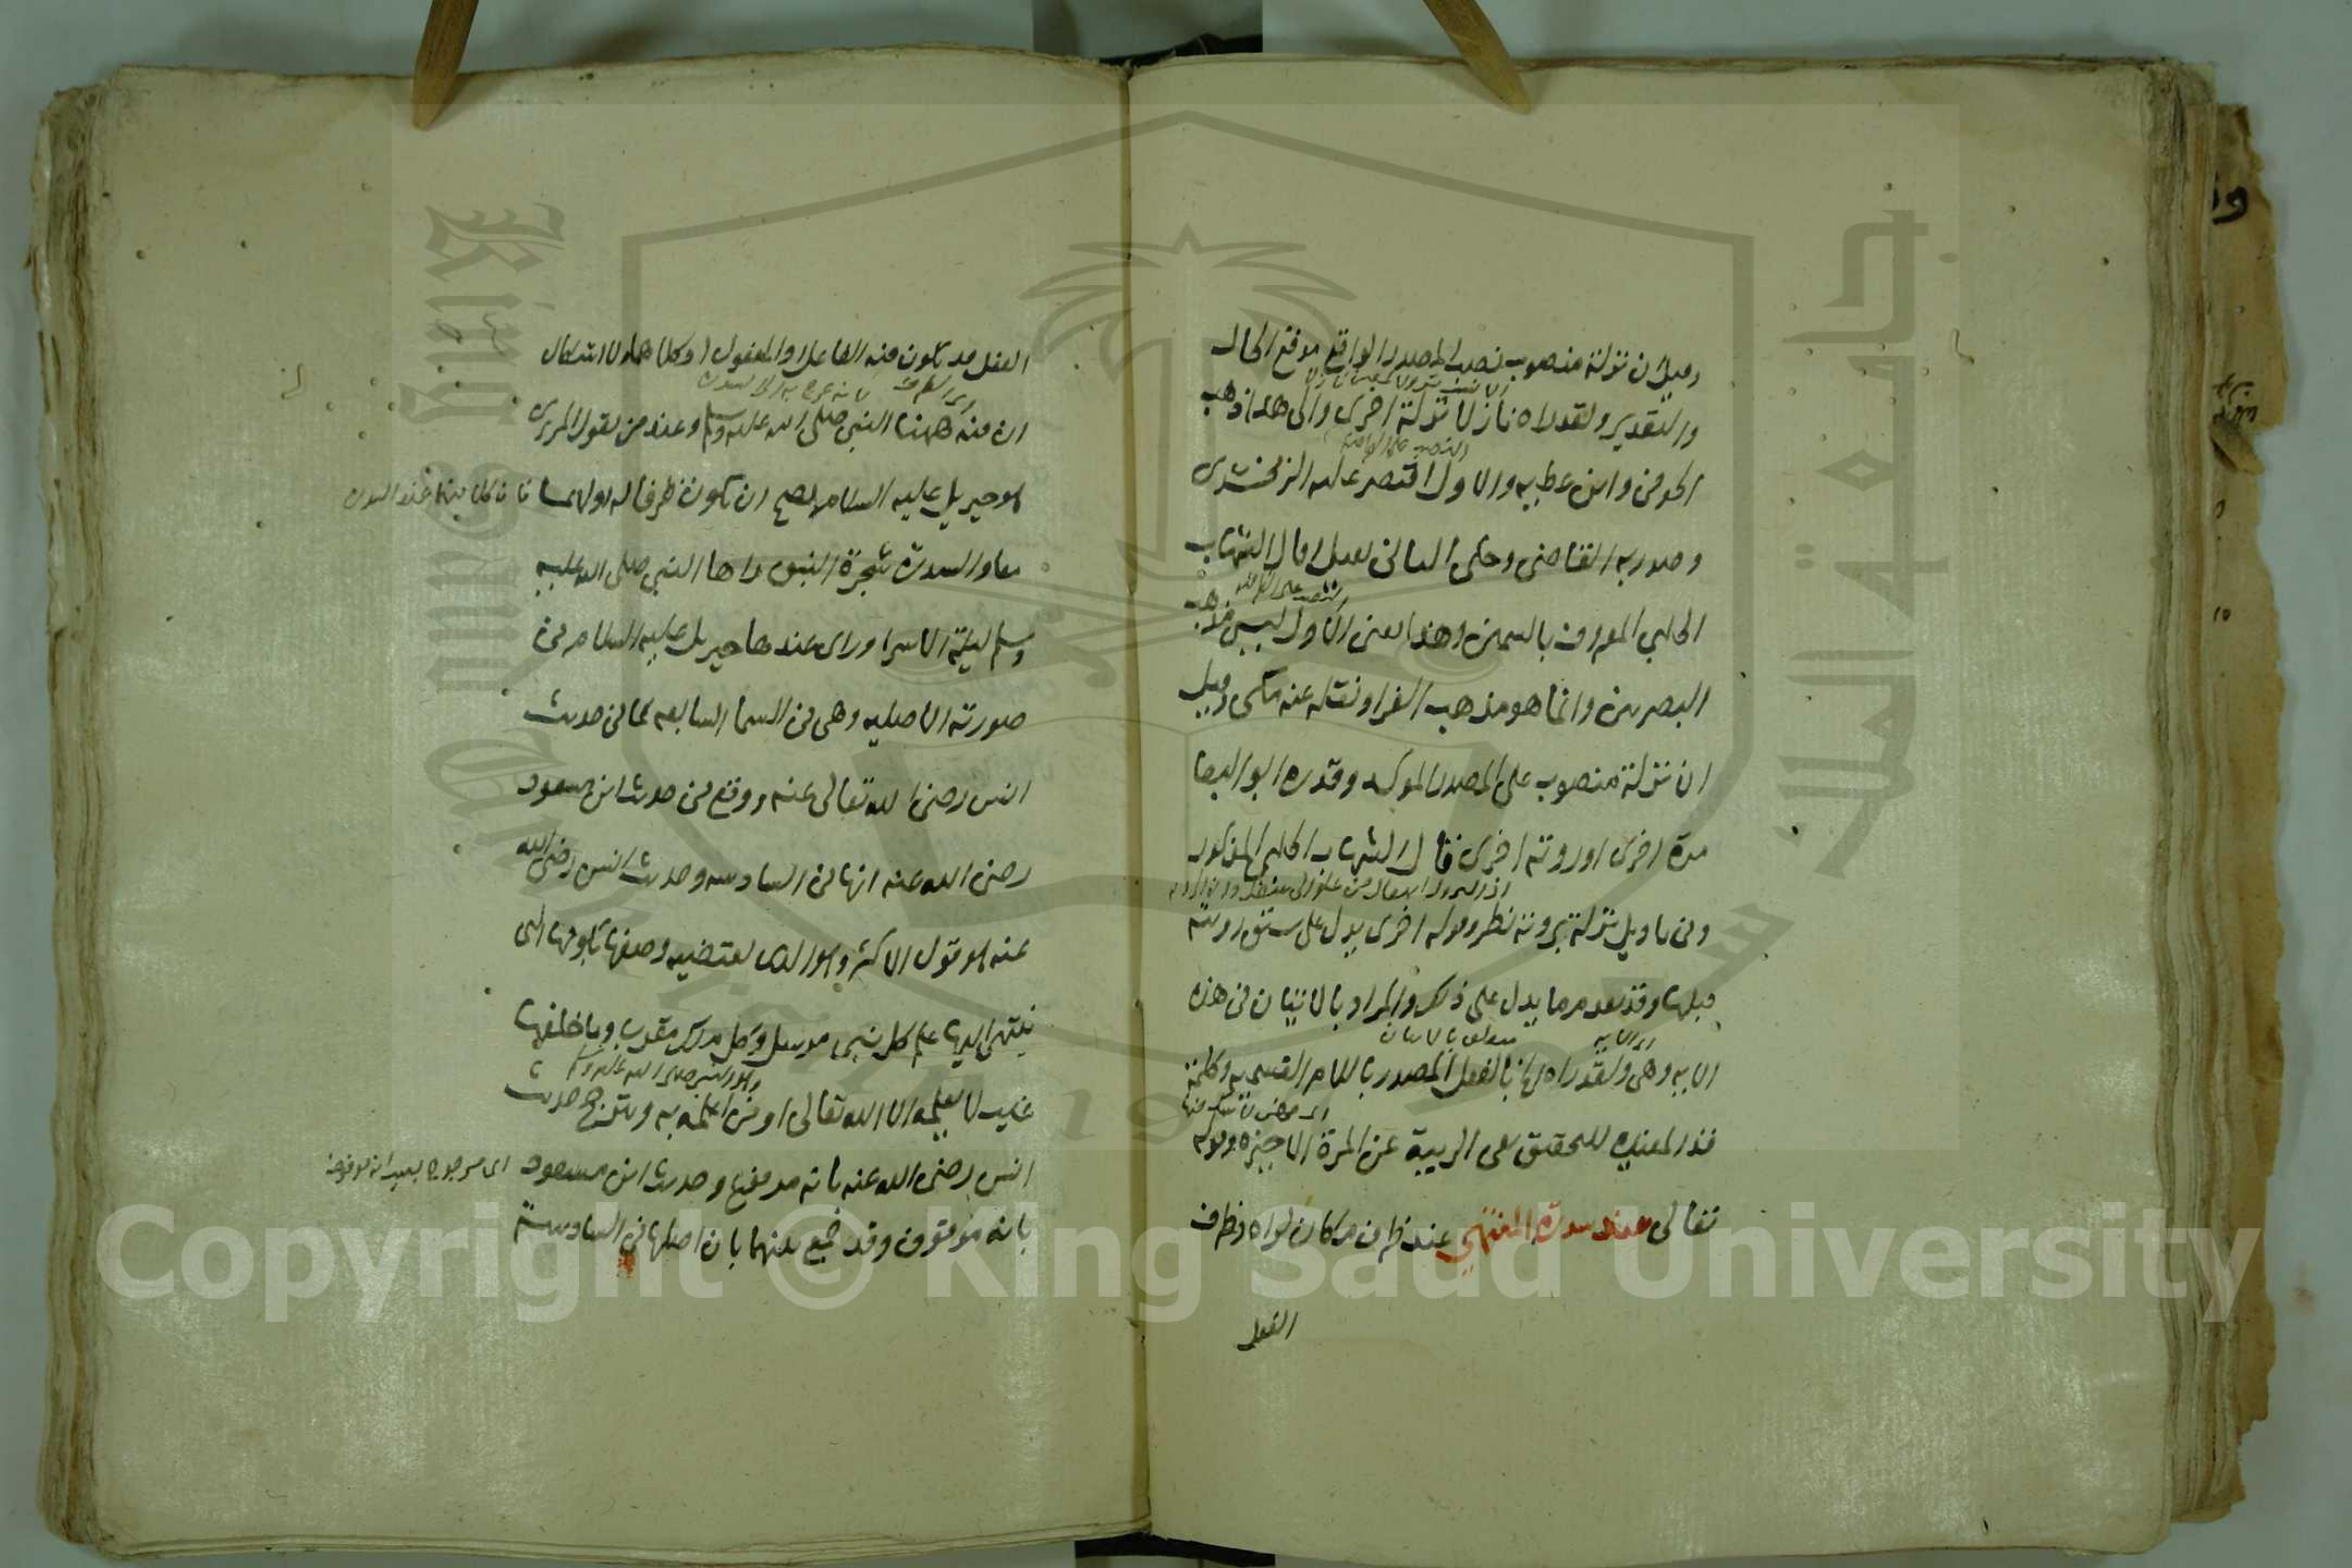 وقيل ان نزلة منصوب نصب المصدر الواقع موقع الحال
والتقدير ولقد راه نازلا نزلة اخرى والى هذا ذهب
الحوفي وابن عطيه والاول اقتصر عليه الزمخشري
وصدر به القاضي وحكى الثاني بقيل قال الشهاب
الحلبي المعروف بالسمين وهذا يعني الاول ليس مذهب
البصريين وانما هو مذهب الفرا ونقله عنه مكي وقيل
ان نزلة منصوب على المصدر الموكد وقدره ابو البقا
مرة اخرى او روية اخرى قال الشهاب الحلبي المذكور
وفي تاويل نزلة بروية نظر وقوله اخرى يدل على سبق روية
قبلها وقد تقدم ما يدل على ذلك والمراد بالاتيان في هذه
متعلق بالاتيان
الايه وهي ولقد راه بالفعل المصدر باللام القسميه وكلمة
قد المفيده للتحقيق نفي الريبة عن المرة الاخيره وقوله
تعالى عند سدرة المنتهي عند ظرف مكان لراه وظرف
الفعل
الفعل قد يكون فيه الفاعل او المفعول او كلاهما ولا اشكال
ان فيه ههنا النبي صلى الله عليه وسلم وعند من يقول المرئى
هو جبريل عليه السلام يصح ان يكون ظرفا له ولهما
فان كلا منهما عند السدرة
معا والسدرة شجرة النبق راها النبي صلى الله عليه
وسلم ليلة الاسرا وراى عندها جبريل عليه السلام في
صورته الاصليه وهى في السما السابعه كما في حديث
انس رضي الله تعالى عنه ووقع في حديث ابن مسعود
رضي الله عنه انها في السادسه وحديث انس رضي الله
عنه هو قول الاكثر وهو الذى يقتضيه وصفها بكونها التى
ينتهي اليها علم كل نبي مرسل وكل ملك مقرب وما خلفها
وهو النبي صلى الله عليه وسلم
غيب لا يعلمه الا الله تعالى او من اعلمه به ويترجح حديث
انس رضي الله عنه بانه مرفوع وحديث ابن مسعود
بانه موقوف وقد جمع بينهما بان اصلها في السادسة
Copyright © King Saud University